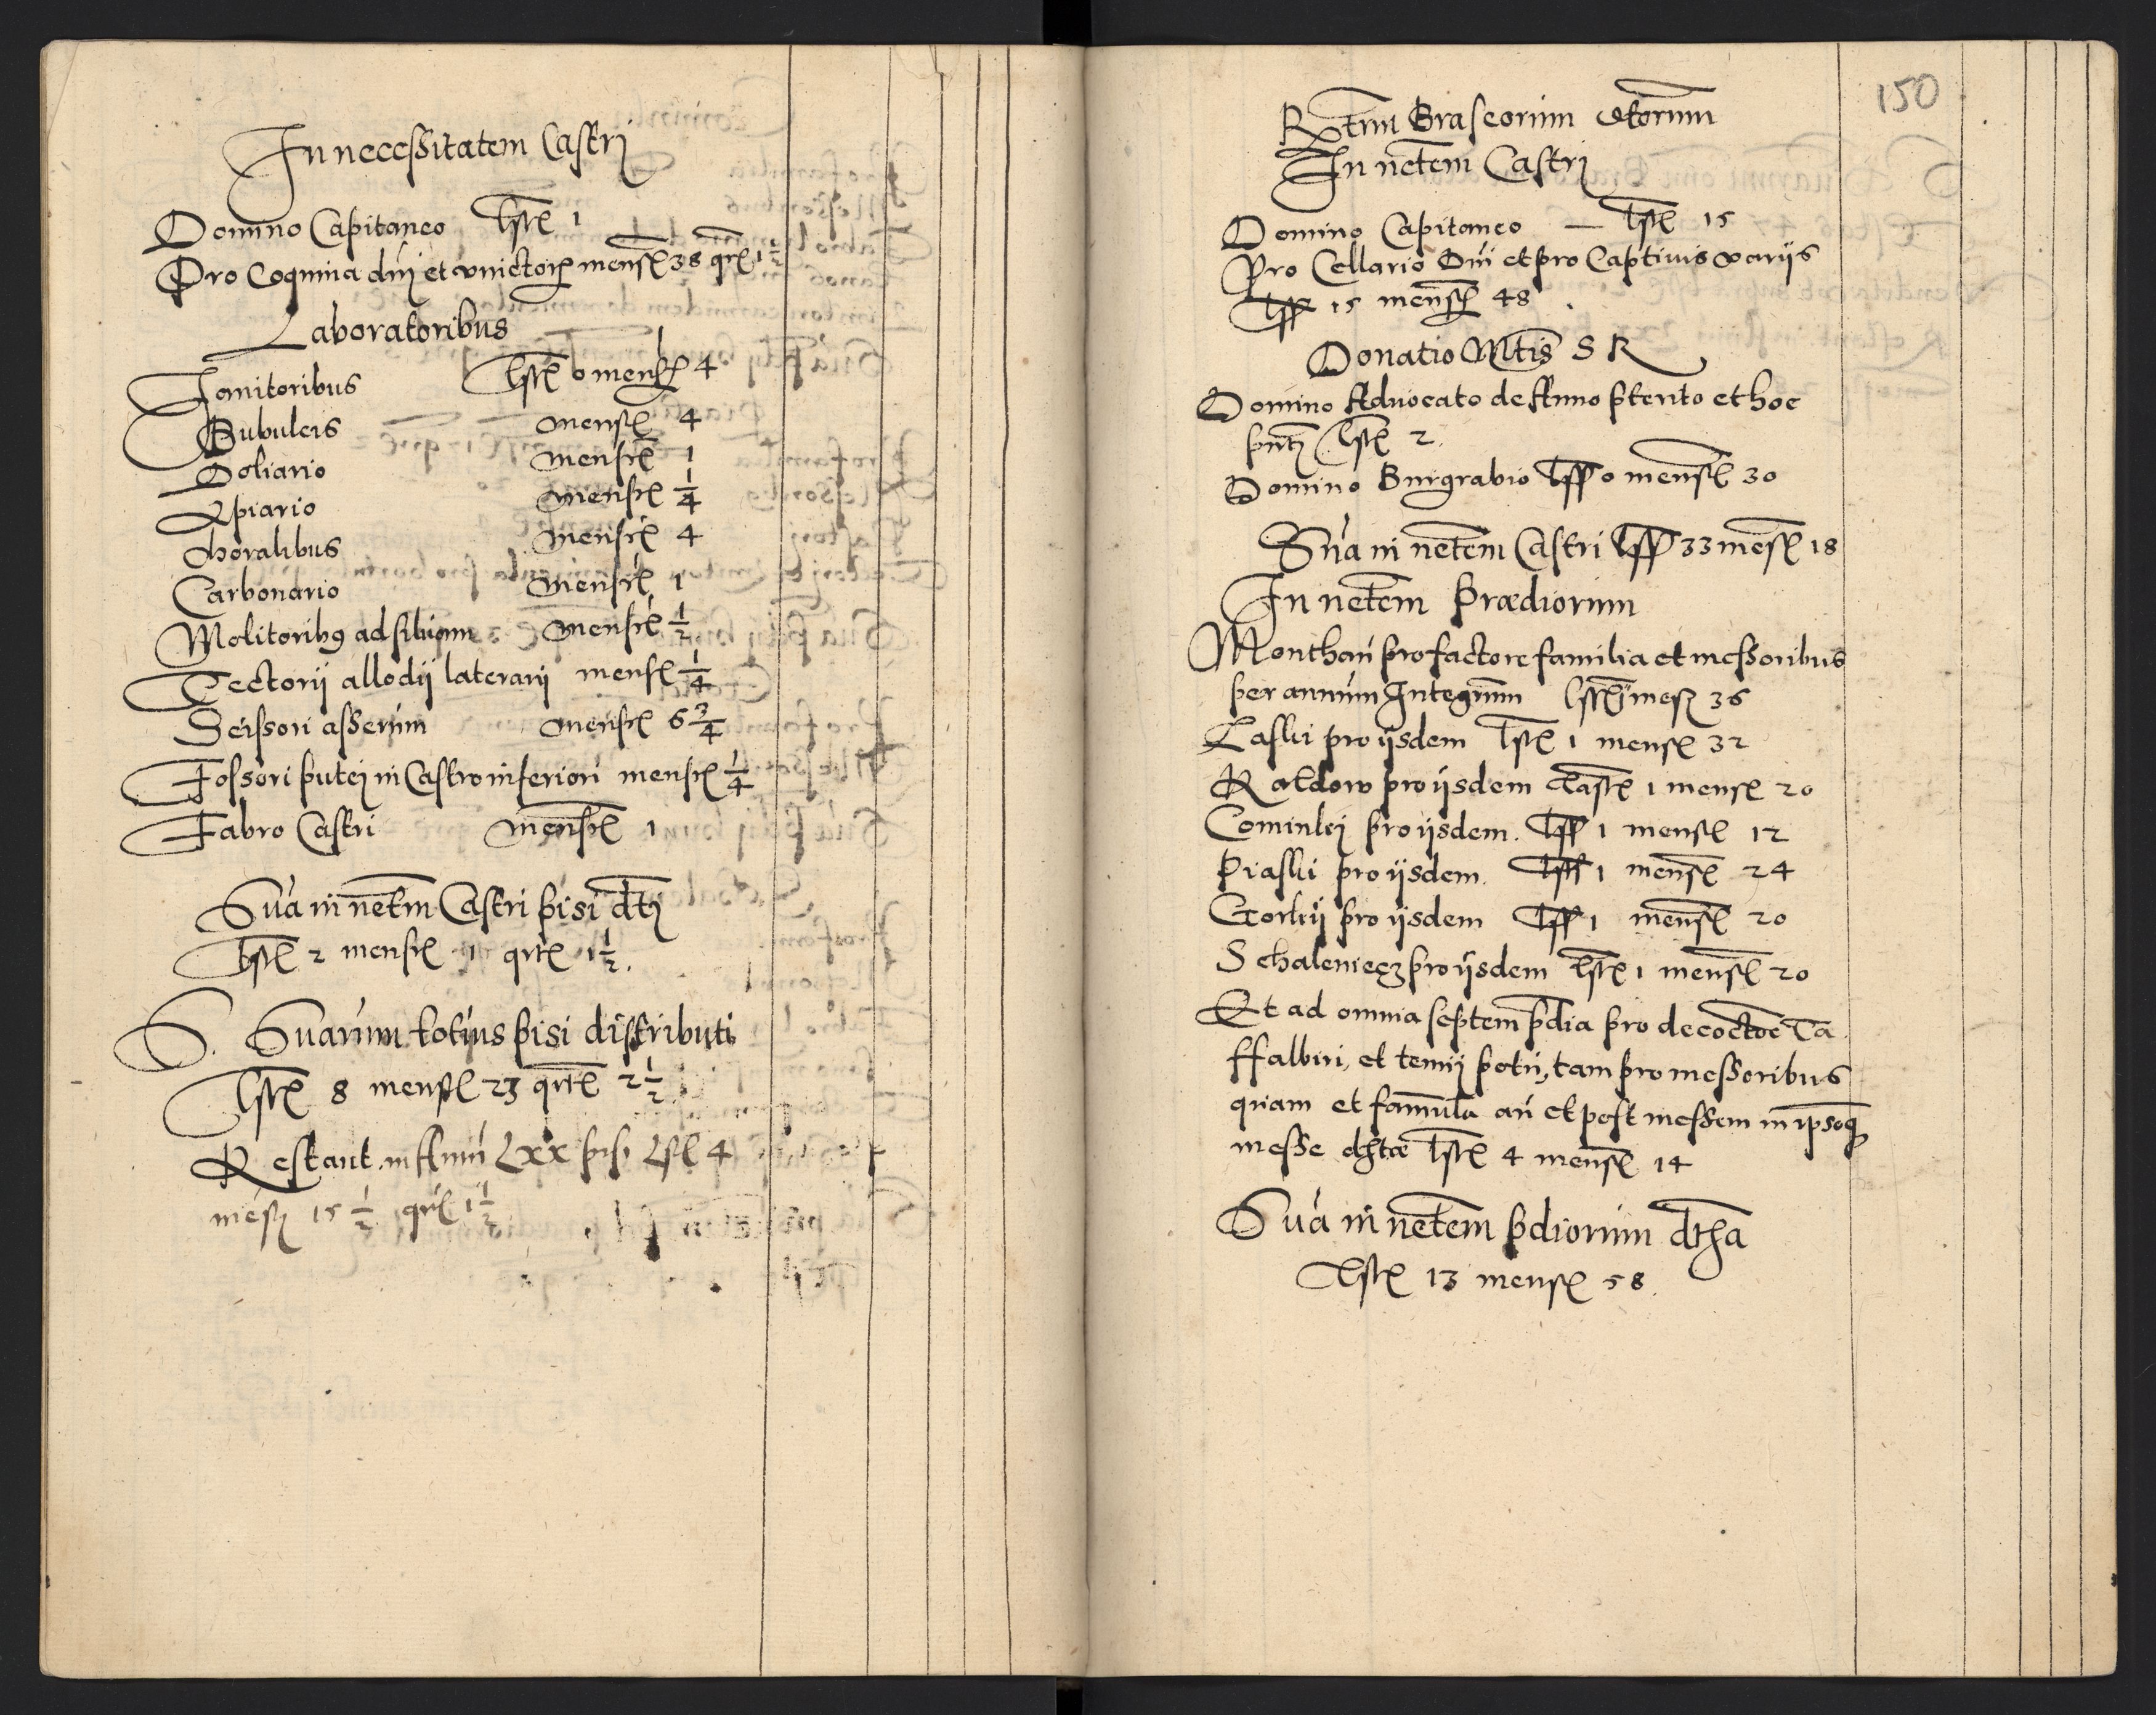 In necessitatem Castri
Domino Capitaneo lstꝭ 1
Pro Coquina dni et vnictoꝝ mensꝭ 38 qrꝭ 1½
Laboratoribus
Janitoribus lstꝭ 0 mensꝭ 4
Bubulcis mensꝭ 4
Doliario mensrꝭ 1
Apiario mensrꝭ ¼
Choralibus mensrꝭ 4
Carbonario mensrꝭ 1
Molitoribꝯ ad siluam mensrꝭ ½
Tectorij allodij laterarij mensꝭ ¼
Scissori asserum mensrꝭ 6¾
Fossori putej in Castro inferiori mensrꝭ ¼
Fabro Castri mensrꝭ 1
Sua in netm Castri pisi dtj
lstꝭ 2 mensrꝭ 1 qrtꝭ 1½.
S. Suarum totius pisi distributi
lstꝭ 8 mensꝭ 23 qrtꝭ 2½
Restant in Annu Lxx pisi Lstꝭ 4
mesꝭ 15½ qrtꝭ 1½
150
Rtm Braseorum dtorum
In netem Castrj
Domino Capitaneo — lstꝭ 15
Pro Cellario Dni et pro Captiuis varijs
lsſſ 15 mensꝭ 48
Donatio Mtis S R
Domino Aduocato de Anno pterito et hoc
pntj lstꝭ 2.
Domino Burgrabio lsſſ 0 mensꝭ 30
Sua in netem Castri lsſſ 33 mesꝭ 18
In netem Prædiorum
Monthau pro factore familia et messoribus
per annum Integrum lstꝭ 1 mesꝭ 36
Laski pro ijsdem lstꝭ 1 mensꝭ 32
Kaldow pro ijsdem Lastꝭ 1 mensꝭ 20
Cominkj pro ijsdem. lsſſ 1 mensꝭ 12
Piaski pro ijsdem. lsſſ 1 mensꝭ 24
Gorkij pro ijsdem lsſſ 1 mensꝭ 20
Schaleniecz pro ijsdem lstꝭ 1 mensꝭ 20
Et ad omnia septem pdia pro decoctoe Ta
ffalbiri, et tenuj potu, tam pro messoribus
quam et famula an et post messem in ipsoqꝫ
messe dhtæ lstꝭ 4 mensꝭ 14
Sua in netem pdiorum dtha
lstꝭ 13 mensꝭ 58.